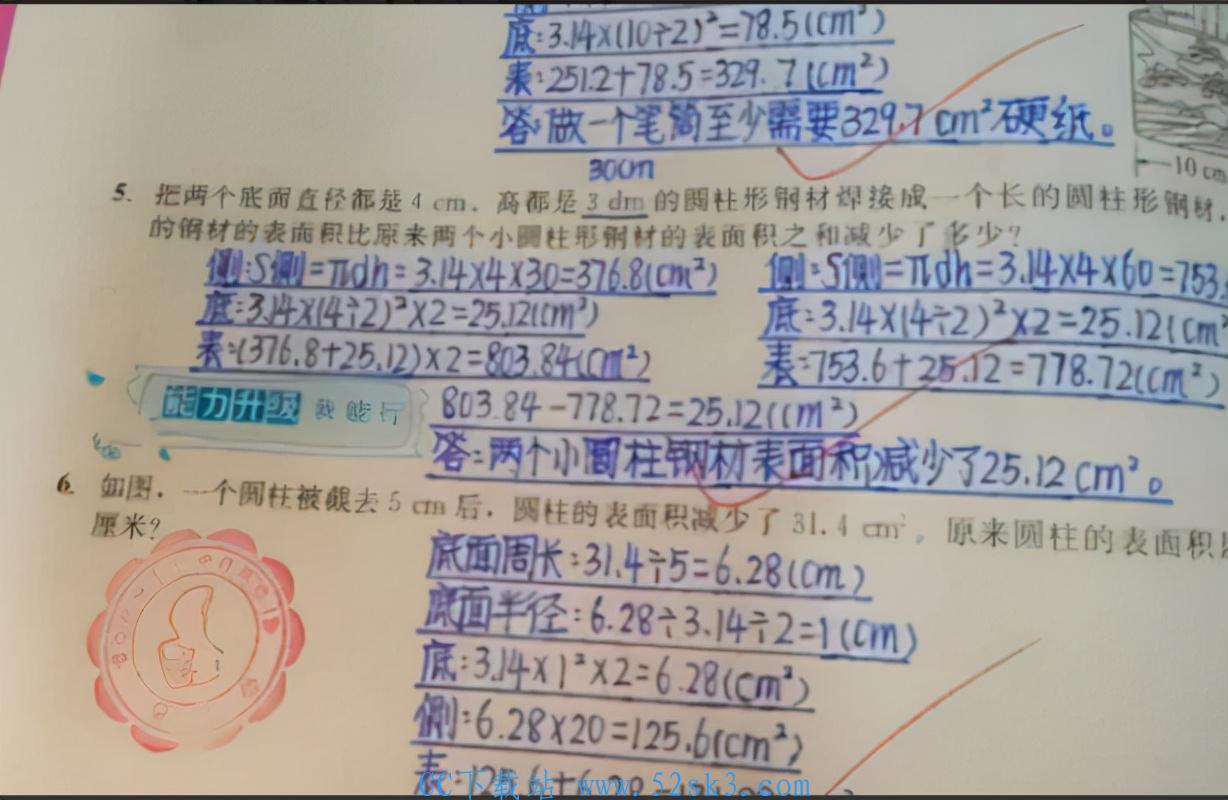 底:3.14×(10÷2)²=78.5(cm²)
表:251.2+78.5=329.7(cm²)
答:做一个笔筒至少需要329.7cm²硬纸。
10 cm
30cm
5. 把两个底面直径都是 4 cm,高都是 3 dm 的圆柱形钢材焊接成一个长的圆柱形钢材,
的钢材的表面积比原来两个小圆柱形钢材的表面积之和减少了多少?
侧:S侧=πdh=3.14×4×30=376.8(cm²)
底:3.14×(4÷2)²×2=25.12(cm²)
表:(376.8+25.12)×2=803.84(cm²)
侧:S侧=πdh=3.14×4×60=753.
底:3.14×(4÷2)²×2=25.12(cm
表:753.6+25.12=778.72(cm²)
803.84-778.72=25.12(cm²)
答:两个小圆柱钢材表面积减少了25.12cm²。
能力升级 我能行
6. 如图,一个圆柱被截去 5 cm 后,圆柱的表面积减少了 31.4 cm²。原来圆柱的表面积
厘米?
底面周长:31.4÷5=6.28(cm)
底面半径:6.28÷3.14÷2=1(cm)
底:3.14×1²×2=6.28(cm²)
侧:6.28×20=125.6(cm²)
表:125.6+6.28
CC下载站 www.52sk3.com